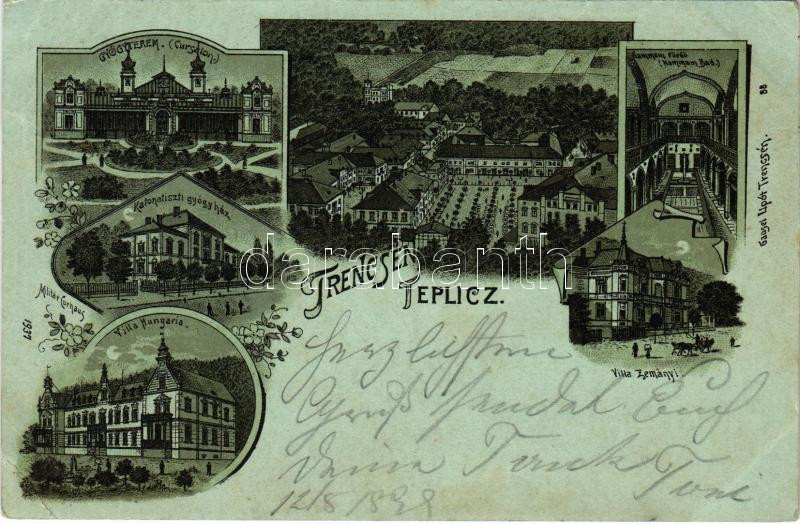 GYÓGYTEREM. - (Cursalon)
Hammam Fürdő
(Hammam Bad.)
88
Katonatiszti gyógy ház.
Militär Curhaus
1937
Villa Hungaria.
darabanth
TRENCSÉN
TEPLICZ.
Villa Zemányi.
Gansel Lipót Trencsén.
Herzlichsten
Gruß sendet Euch
Deine Tante
Toni
12/8 1898